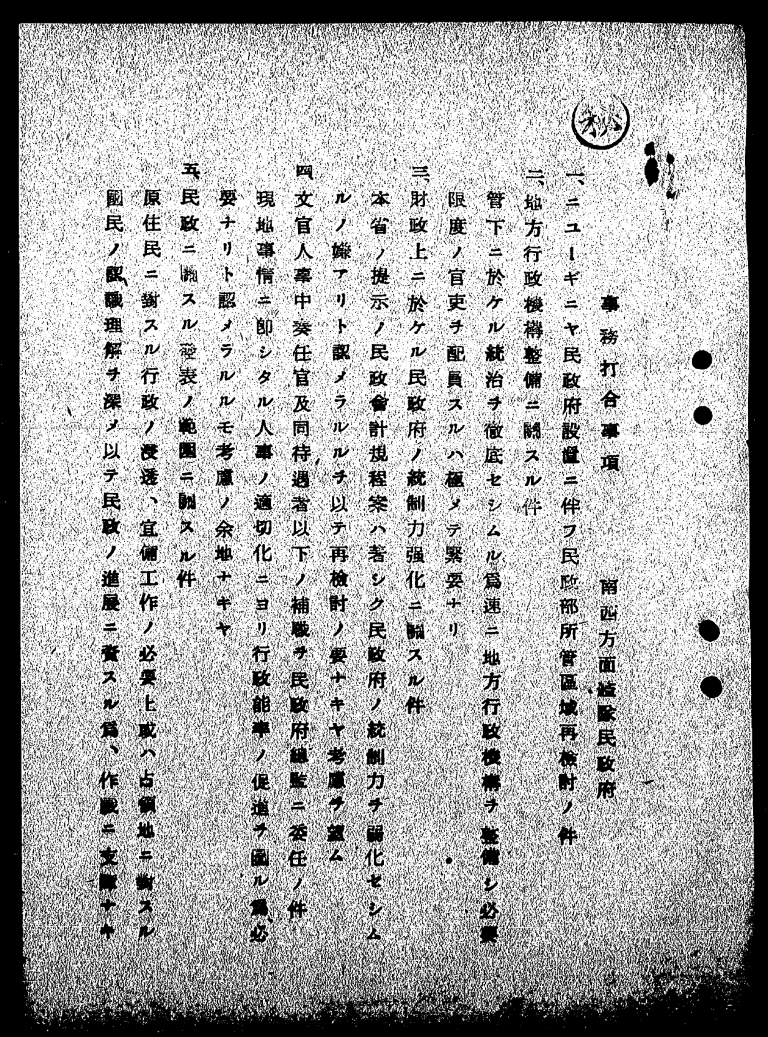 秘
事務打合事項　南西方面艦隊民政府
一、ニユーギニヤ民政府設置ニ伴フ民政部所管區域再檢討ノ件
二、地方行政機構整備ニ關スル件
管下ニ於ケル統治ヲ徹底セシムル爲速ニ地方行政機構ヲ整備シ必要
限度ノ官吏ヲ配員スルハ極メテ緊要ナリ
三、財政上ニ於ケル民政府ノ統制力强化ニ關スル件
本省ノ提示ノ民政會計規程案ハ著シク民政府ノ統制力ヲ弱化セシム
ルノ嫌アリト認メラルルヲ以テ再檢討ノ要ナキヤ考慮ヲ望ム
四、文官人事中奏任官及同待遇者以下ノ補職ヲ民政府總監ニ委任ノ件
現地事情ニ卽シタル人事ノ適切化ニヨリ行政能率ノ促進ヲ圖ル爲必
要ナリト認メラルルモ考慮ノ余地ナキヤ
五、民政ニ關スル發表ノ範圍ニ關スル件
原住民ニ對スル行政ノ浸透、宣傳工作ノ必要上或ハ占領地ニ對スル
國民ノ認識理解ヲ深メ以テ民政ノ進展ニ資スル爲、作戰ニ支障ナキ